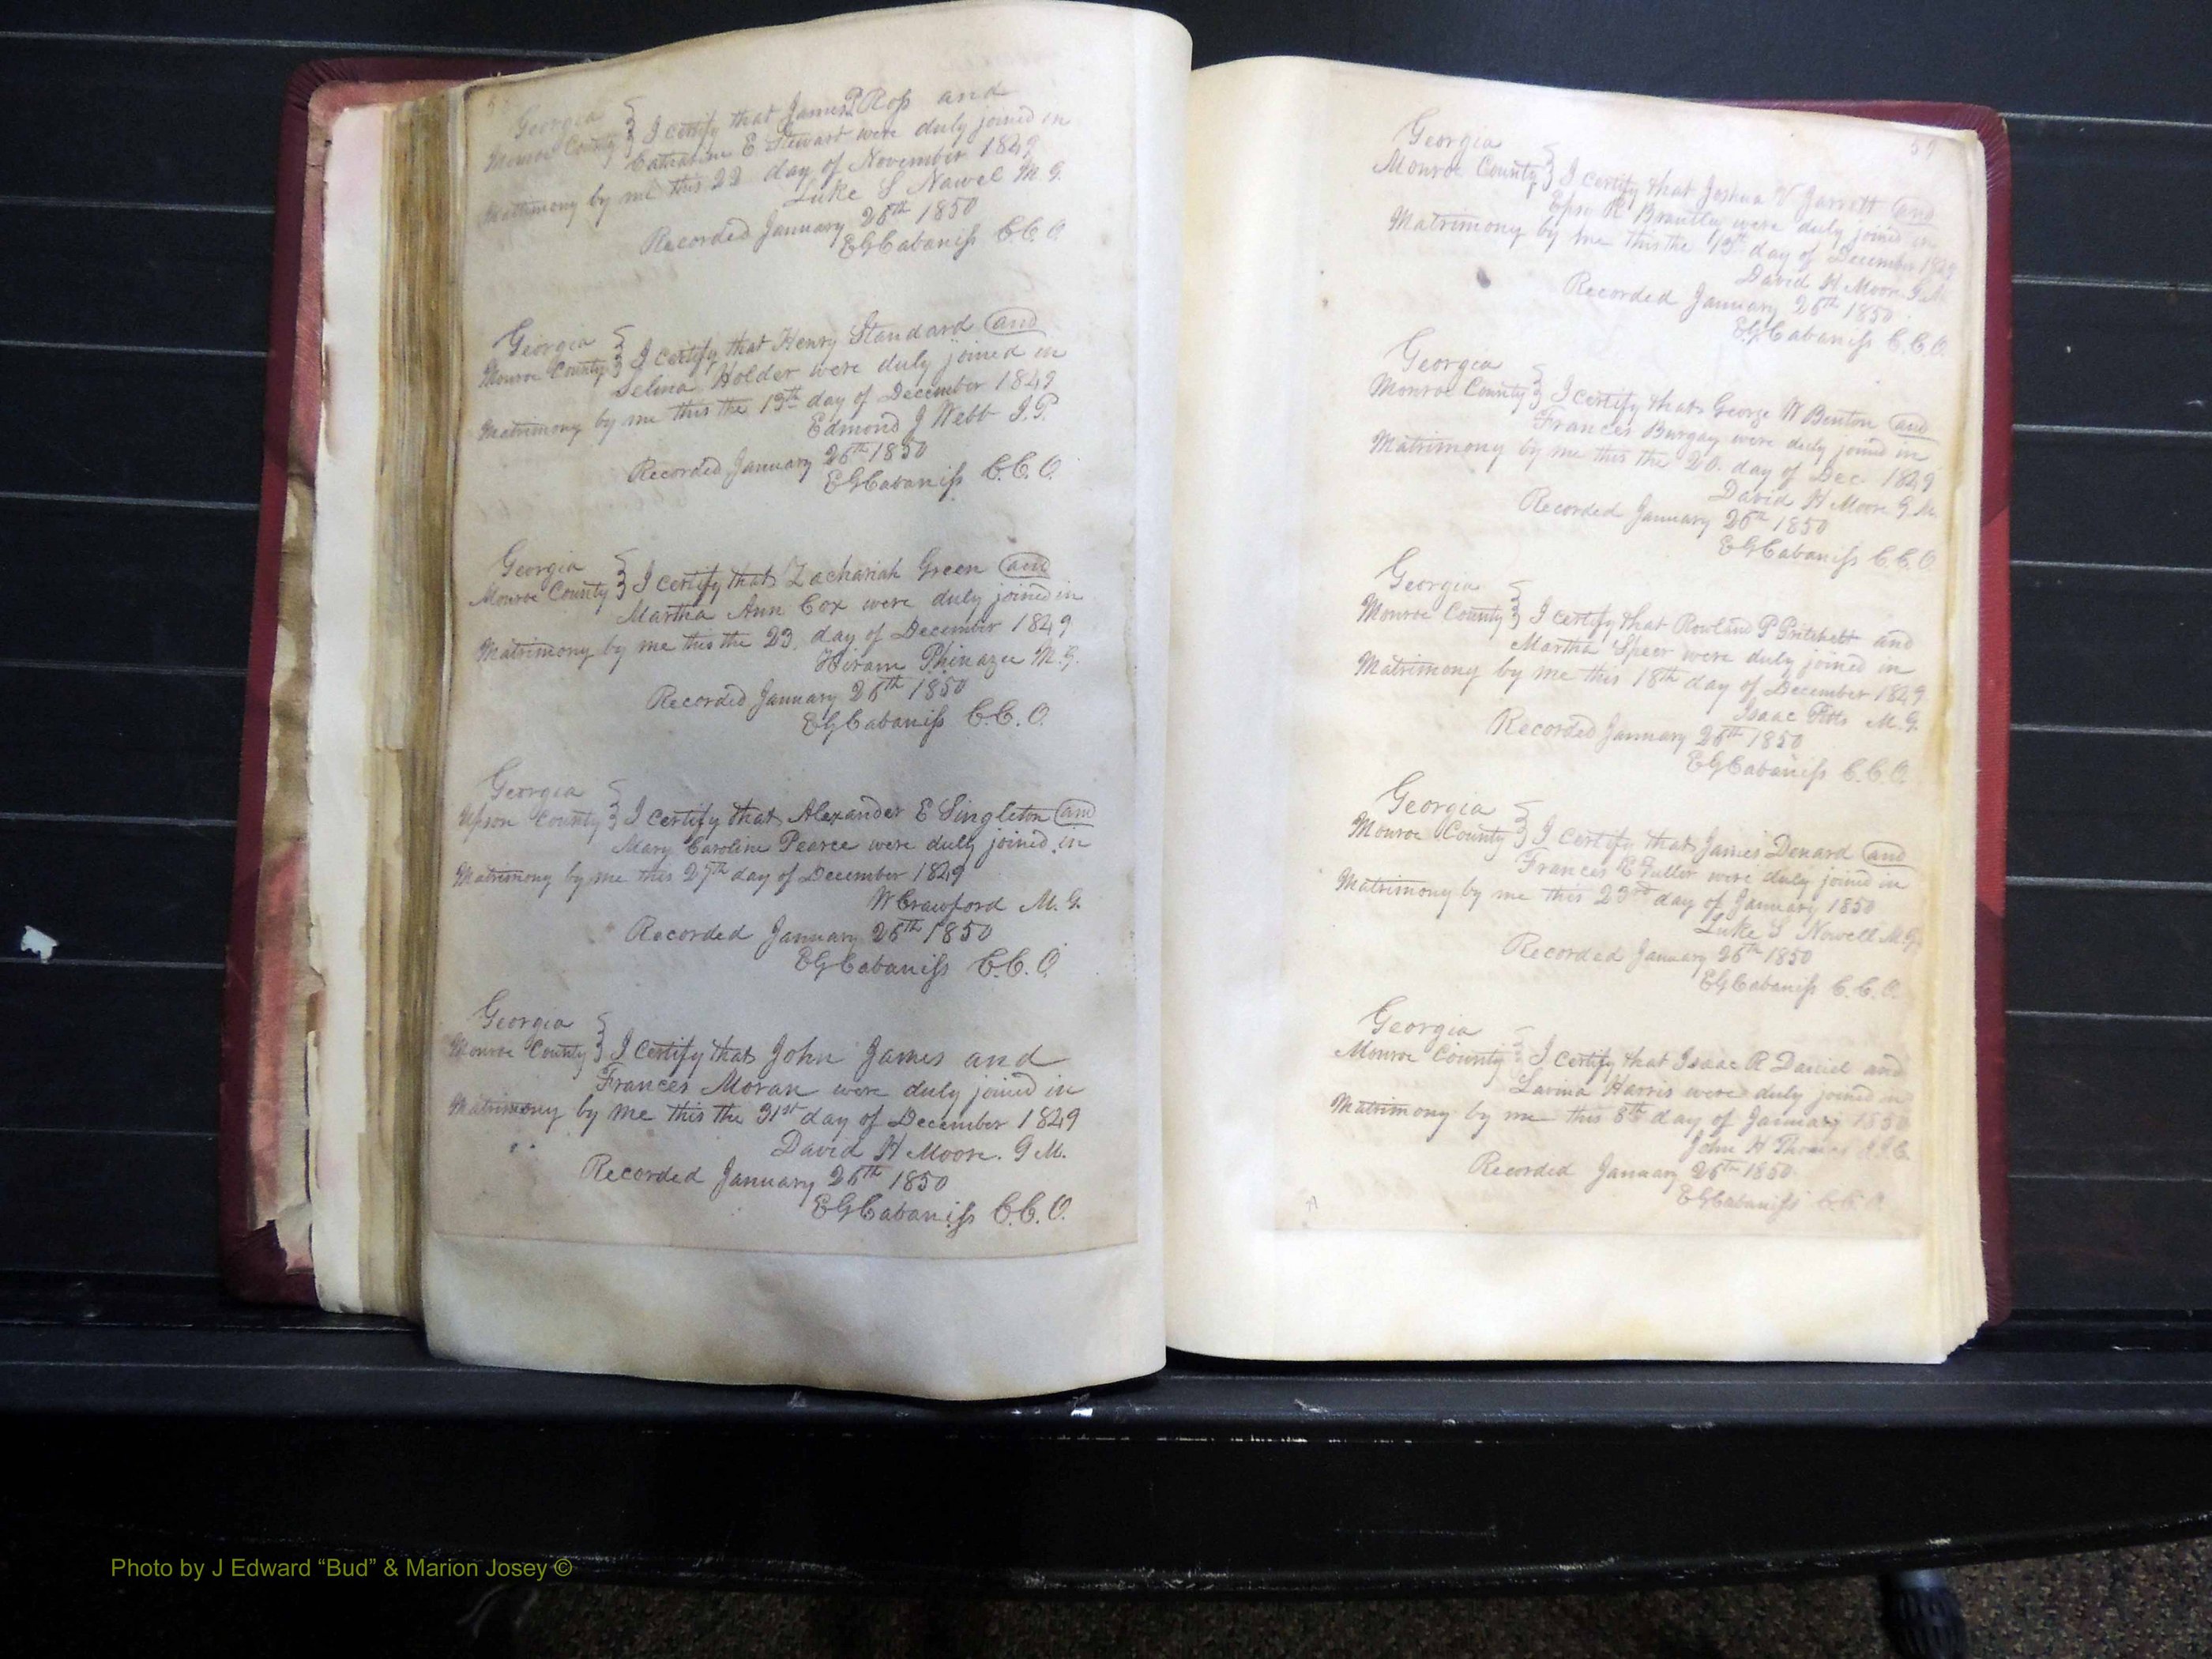 Georgia
Monroe County } I certify that James P Ross and
Catharine E Stewart were duly joined in
Matrimony by me this 22 day of November 1849
Luke S Nawel M. G.
Recorded January 26th 1850
EGCabaniss C. C. O.
Georgia
Monroe County } I certify that Henry Standard and
Selina Holder were duly joined in
Matrimony by me this the 13th day of December 1849
Edmond J Webb J. P.
Recorded January 26th 1850
EGCabaniss C. C. O.
Georgia
Monroe County } I certify that Zachariah Green and
Martha Ann Cox were duly joined in
Matrimony by me this the 23. day of December 1849
Hiram Phinazee M. G.
Recorded January 26th 1850
EGCabaniss C. C. O.
Georgia
Upson County } I certify that Alexander E Singleton and
Mary Caroline Pearce were duly joined in
Matrimony by me this 27th day of December 1849
W Crawford M. G.
Recorded January 26th 1850
EGCabaniss C. C. O.
Georgia
Monroe County } I certify that John James and
Frances Moran were duly joined in
Matrimony by me this the 31st day of December 1849
David H Moore. G M.
Recorded January 26th 1850
EGCabaniss C. C. O.
59
Georgia
Monroe County } I certify that Joshua V Jarrett and
R Brantley were duly joined in
Matrimony by me this the 13th day of December 1849
David H Moore
Recorded January 26th 1850
EGCabaniss C. C. O.
Georgia
Monroe County } I certify that George W Benton and
Frances Burgay were duly joined in
Matrimony by me this the 20. day of Dec 1849
David H Moore G. M.
Recorded January 26th 1850
EGCabaniss C. C. O
Georgia
Monroe County } I certify that Rowland P Pritchett and
Martha Speer were duly joined in
Matrimony by me this 18th day of December 1849
Isaac Potts M. G.
Recorded January 26th 1850
EGCabaniss C. C. O.
Georgia
Monroe County } I certify that James Denard and
Frances E Fuller were duly joined in
Matrimony by me this 23rd day of January 1850
Luke S Nowell M. G.
Recorded January 26th 1850
EGCabaniss C. C. O.
Georgia
Monroe County } I certify that Isaac R Daniel and
Lavina Harris were duly joined in
Matrimony by me this 8th day of January 1850
John H Thomas J. I. C.
Recorded January 26th 1850.
EGCabaniss C. C. O.
Photo by J Edward “Bud” & Marion Josey ©